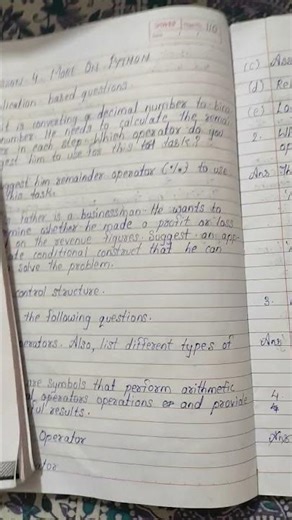 4. MORE ON PYTHON
lication based questions
it is converting a decimal number to bina
number. He needs to calculate the remai
er in each step. Which operator do you
gest him to use for this task?
ggest him remainder operator (%) to use
this task.
father is a businessman. He wants to
mine whether he made a profit or loss
on the revenue figures. Suggest an app
ate conditional construct that he can
solve the problem.
control structure.
the following questions.
erators. Also, list different types of
are symbols that perform arithmetic
al operators operations or and provide
ful results.
Operator
ator
(c)
(d)
(e)
2.
op
Ans Th
3.
Ans
4
Ans